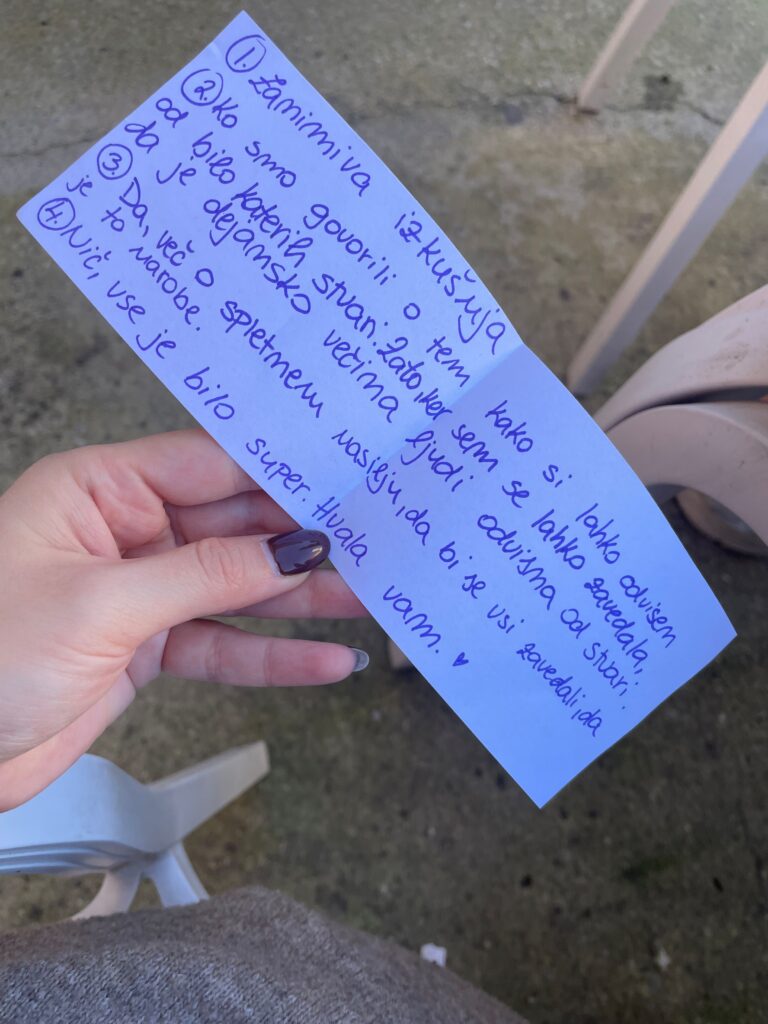 1. Zanimiva izkušnja
2. Ko smo govorili o tem kako si lahko odvisen
od bilo katerih stvari. Zato ker sem se lahko zavedala,
da je dejansko večina ljudi odvisna od stvari.
3. Da, več o spletnem nasilju, da bi se vsi zavedali, da
je to narobe.
4. Nič, vse je bilo super. Hvala vam. ♥